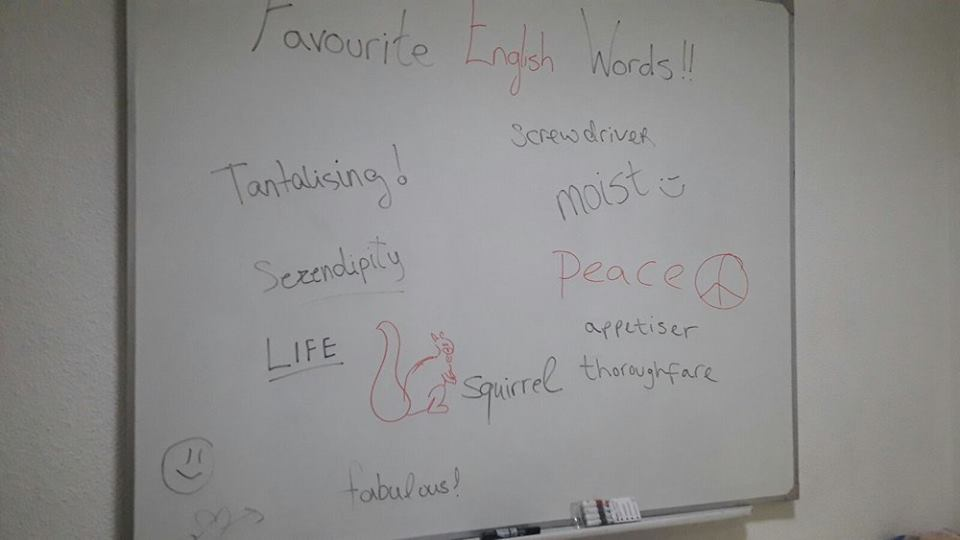 Favourite English Words!!
screwdriver
Tantalising!
moist
Serendipity
Peace
LIFE
appetiser
squirrel
thoroughfare
fabulous!